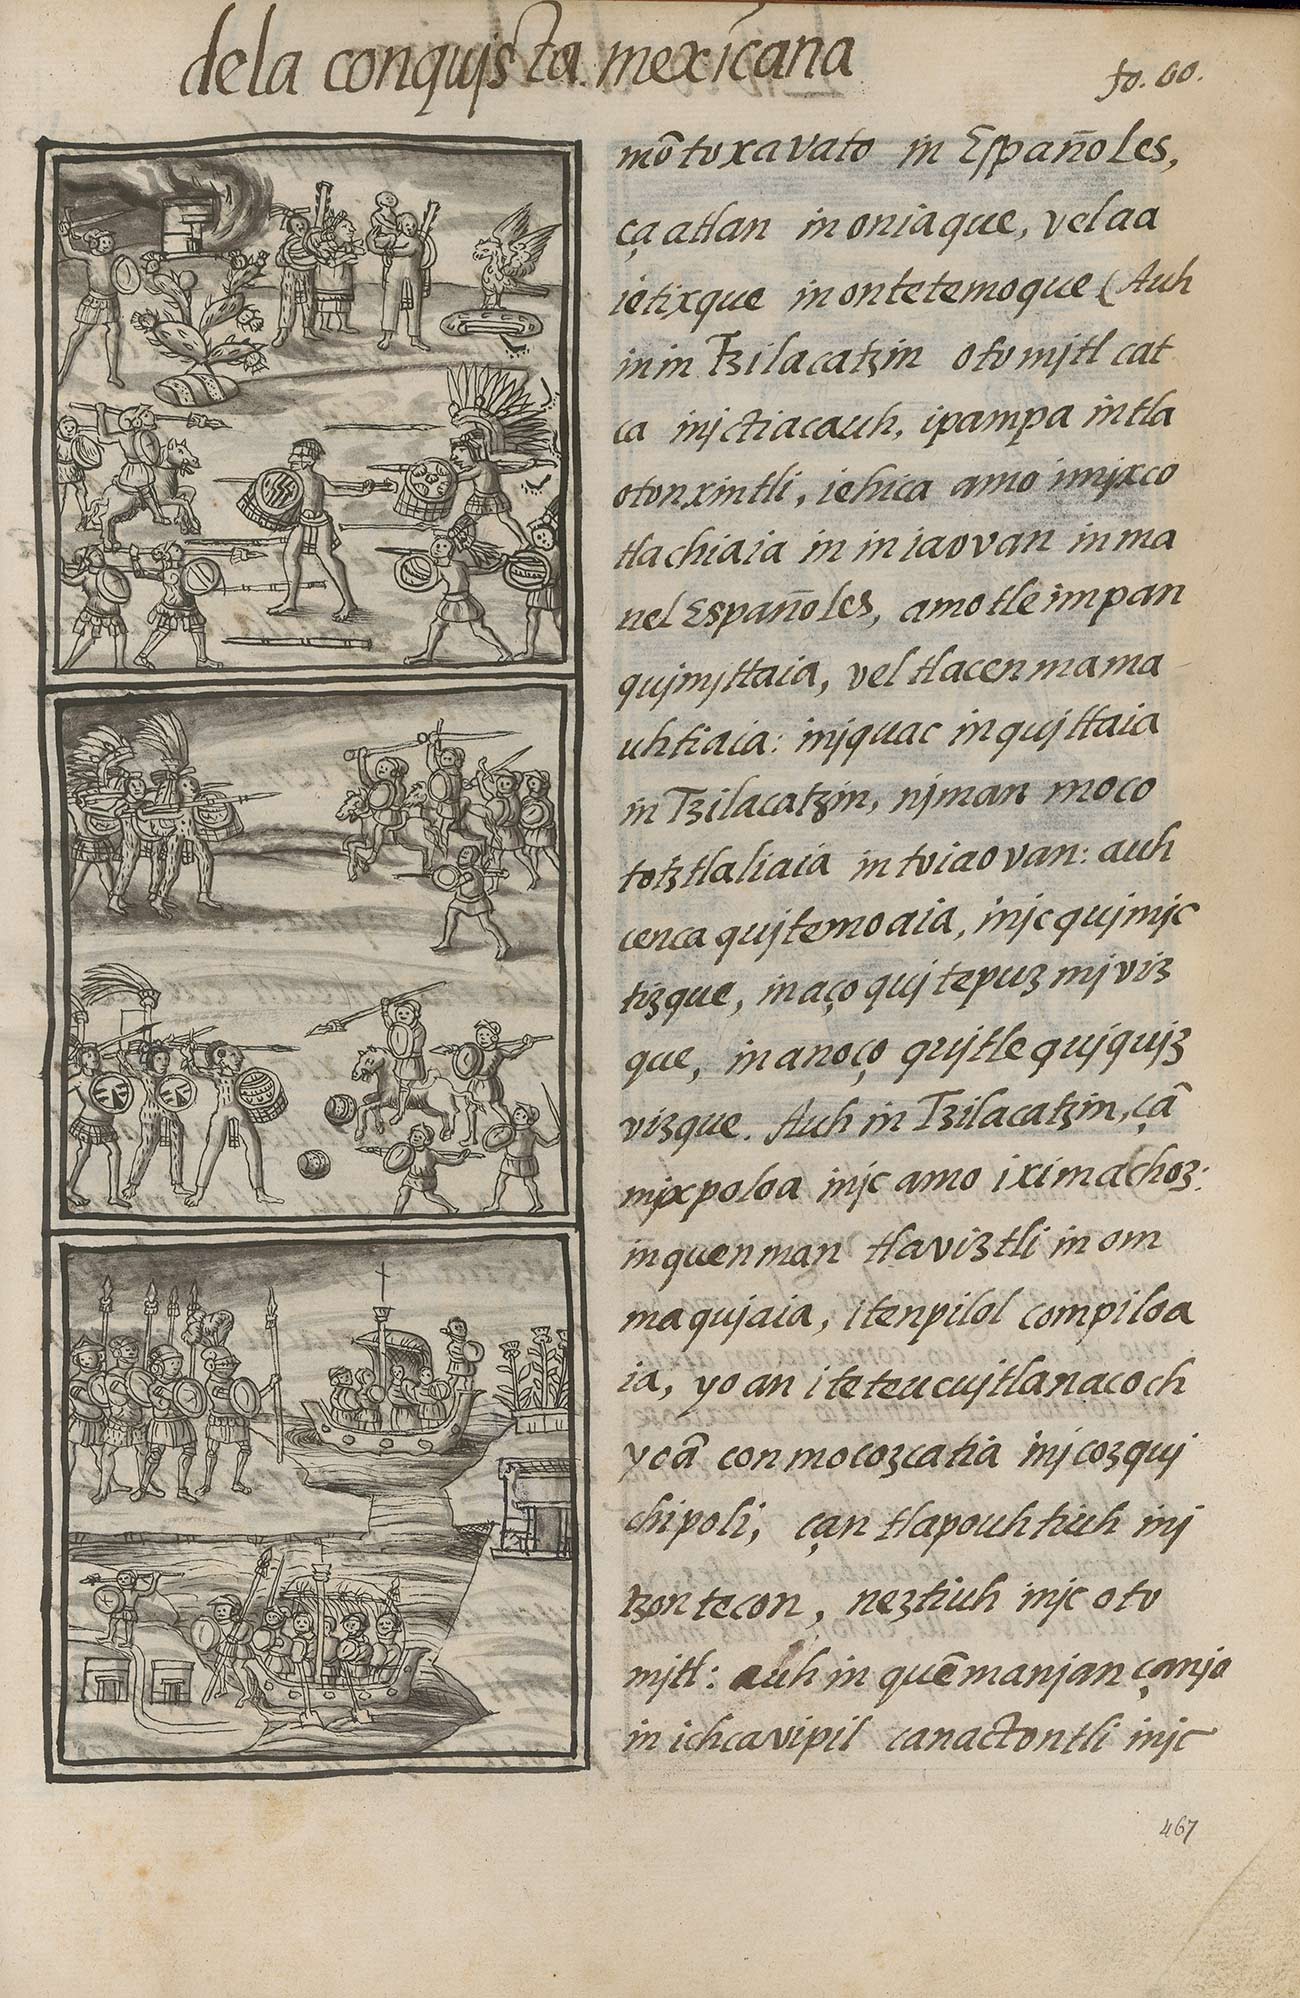 dela conquista mexicana
fo. 60.
mōtoxavato in Españoles,
ça atlan in oniaque, vel aa
ietixque in ontetemoque (Auh
inin Tzilacatzin otomjtl cat
ca injctiacauh, ipampa intla
otonxintli, iehica amo imjxco
tlachiaia in iniaovan in ma
nel Españoles, amo tle impan
qujmjttaia, vel tlacenmama
uhtiaia: injquac inqujttaia
in Tzilacatzin, njman moco
totztlaliaia in toiaovan: auh
cenca qujtemoaia, injc qujmjc
tizque, in aço qujtepuzmjviz
que, in anoço qujtlequjqujz
vizque. Auh in Tzilacatzin, çā
mjxpoloa injc amo iximachoz:
in quenman tlaviztli in om
maqujaia, itenpilol compiloa
ia, yoan iteteucujtlanacoch
yoā conmocozcatia injcozquj
chipoli, çan tlapouhtiuh inj
tzontecon, neztiuh injc oto
mjtl: auh in quēmanjan çanjo
in ichcavipil canactontli injc
467